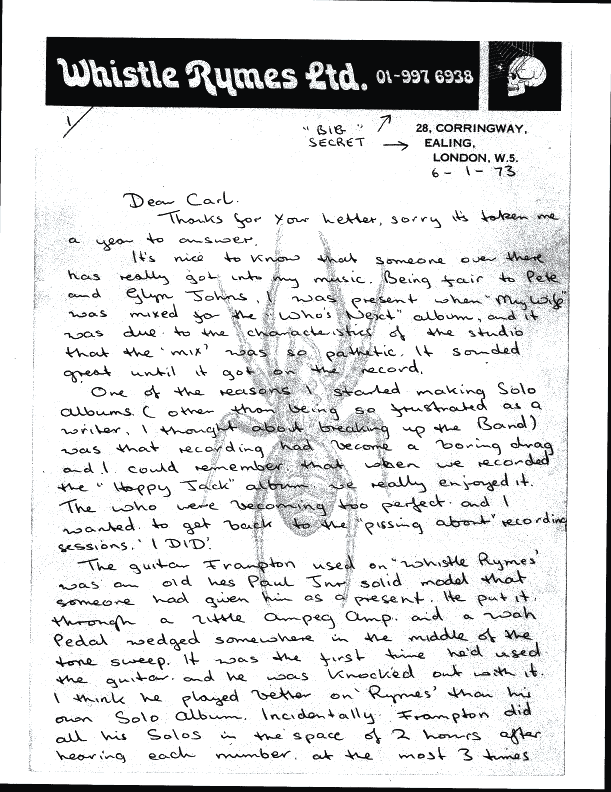 Whistle Rymes Ltd. 01-997 6938
1
"BIG"
SECRET
28, CORRINGWAY,
EALING,
LONDON, W.5.
6-1-73
Dear Carl.
Thanks for your letter, sorry it's taken me
a year to answer.
It's nice to know that someone over there
has really got into my music. Being fair to Pete
and Glyn Johns, I was present when "My Wife"
was mixed for the "Who's Next" album, and it
was due to the characteristics of the studio
that the 'mix' was so pathetic. It sounded
great until it got on the record.
One of the reasons I started making Solo
albums. (other than being so frustrated as a
writer, I thought about breaking up the Band)
was that recording had become a boring drag
and I could remember that when we recorded
the "Happy Jack" album we really enjoyed it.
The Who were becoming too perfect and I
wanted to get back to the "pissing about" recording
sessions. 'I DID'.
The guitar Frampton used on "Whistle Rymes'
was an old Les Paul Jnr solid model that
someone had given him as a present. He put it
through a little Ampeg Amp. and a wah
Pedal wedged somewhere in the middle of the
tone sweep. It was the first time he'd used
the guitar and he was knocked out with it.
I think he played better on 'Rymes' than his
own Solo Album. Incidentally Frampton did
all his Solos in the space of 2 hours after
hearing each number. at the most 3 times